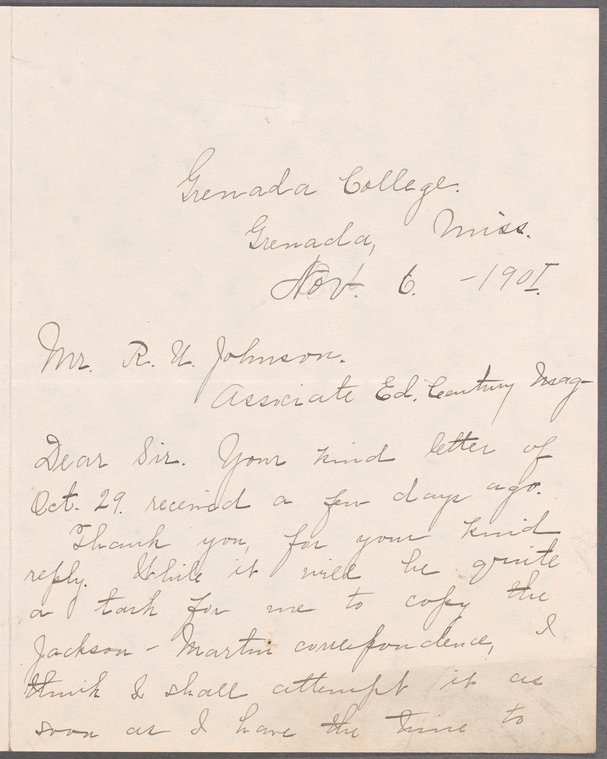 Grenada College.
Grenada, Miss.
Nov. 6. -1901.
Mr. R. U. Johnson.
Associate Ed. Century Mag-
Dear Sir. Your kind letter of
Oct. 29. received a few days ago.
Thank you, for your kind
reply. While it will be quite
a task for me to copy the
Jackson - Martin correspondence, I
think I shall attempt it as
soon as I have the time to